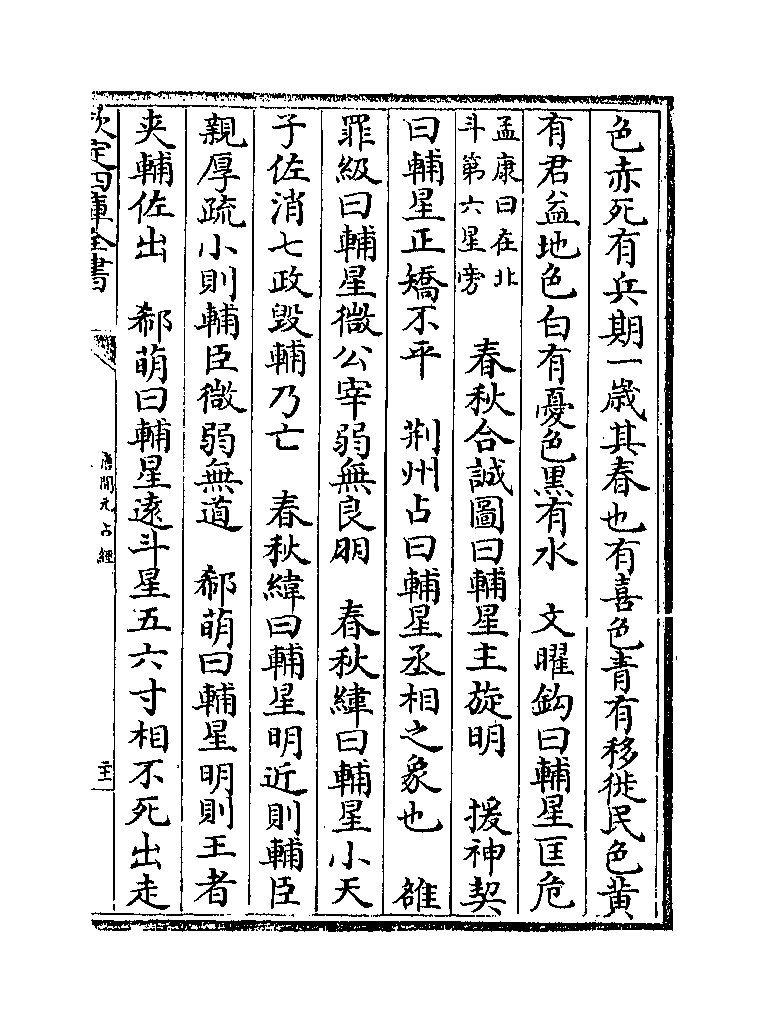 色赤死有兵期一歳其春也有喜色青有移徙民色黄
有君益地色白有憂色黒有水　文曜鈎曰輔星匡危
孟康曰在北
斗第六星旁
春秋合誠圖曰輔星主旋明　援神契
曰輔星正矯不平　荆州占曰輔星丞相之象也　雒
罪級曰輔星微公宰弱無良明　春秋緯曰輔星小天
子佐消七政毁輔乃亡　春秋緯曰輔星明近則輔臣
親厚疏小則輔臣微弱無道　郗萌曰輔星明則王者
夾輔佐出　郗萌曰輔星遠斗星五六寸相不死出走
欽定四庫全書
唐開元占經